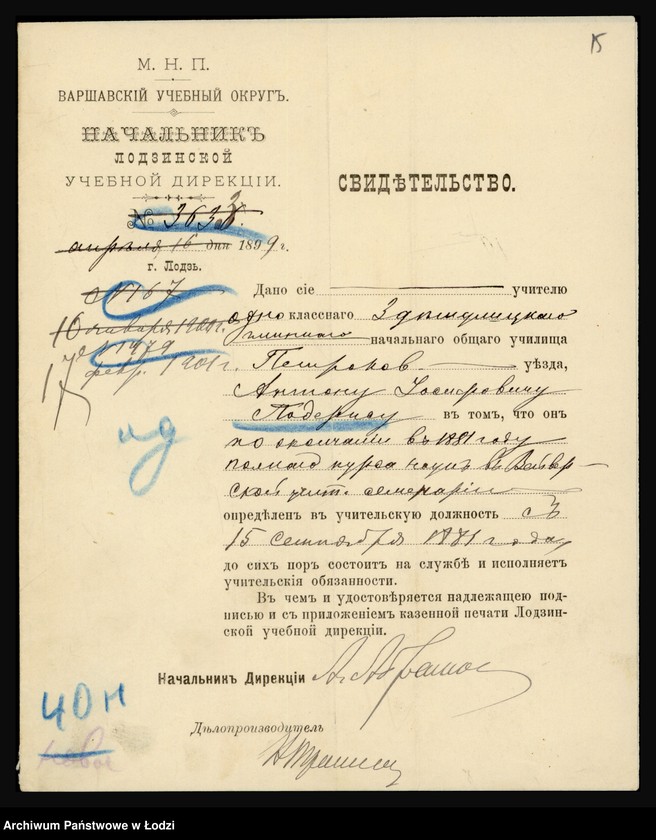 15
М. Н. П.
ВАРШАВСКІЙ УЧЕБНЫЙ ОКРУГЪ.
НАЧАЛЬНИКЪ
ЛОДЗИНСКОЙ
УЧЕБНОЙ ДИРЕКЦІИ.
СВИДѢТЕЛЬСТВО.
№ 3632.
апрѣля 16 дня 1899 г.
г. Лодзь.
167
10 января 1900 г.
№ 1979
17 февр. 1901 г.
Дано сіе учителю
одно класснаго Здунулицкаго
гминнаго начальнаго общаго училища
Петроков. уѣзда,
Антону Іосифовичу
въ томъ, что онъ
по окончаніи въ 1881 году
полнаго курса наукъ въ Вейвер-
ской учит. семинаріи
опредѣленъ въ учительскую должность съ
15 сентября 1881 года,
до сихъ поръ состоитъ на службѣ и исполняетъ
учительскія обязанности.
Въ чемъ и удостовѣряется надлежащею под-
писью и съ приложеніемъ казенной печати Лодзин-
ской учебной дирекціи.
Начальникъ Дирекціи
40 н
Дѣлопроизводитель
Archiwum Państwowe w Łodzi